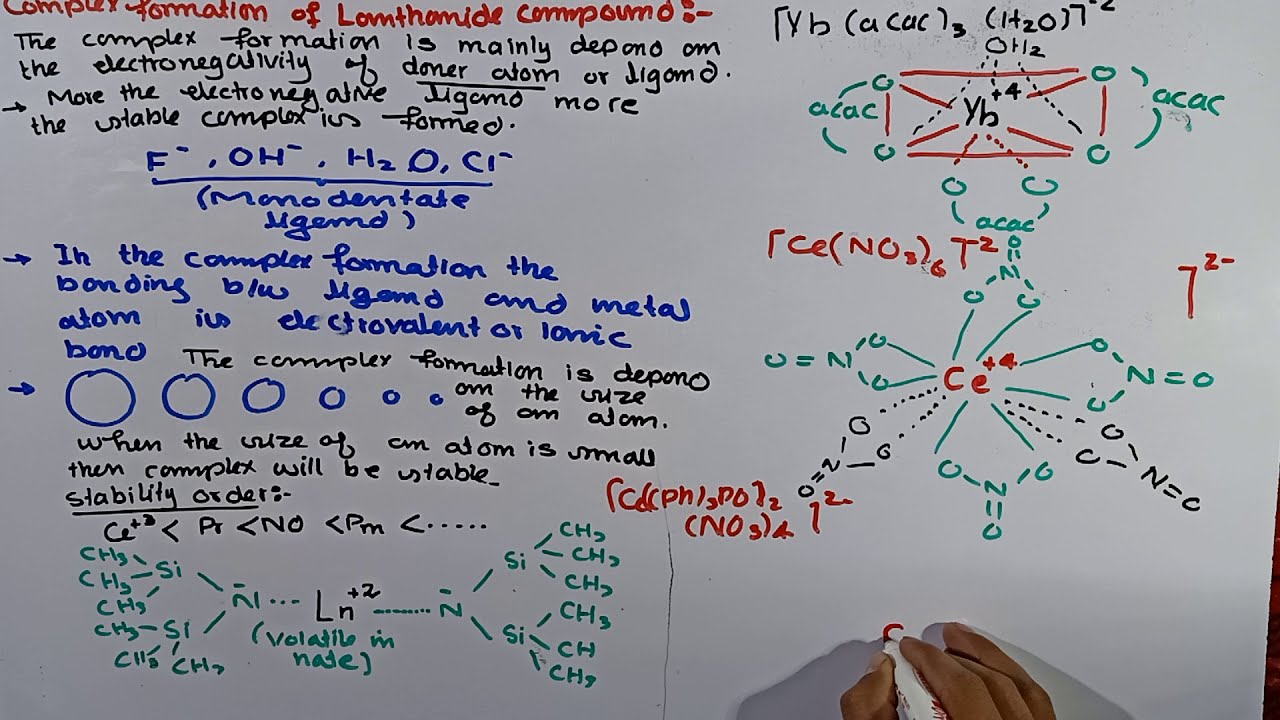 Complex formation of Lamthamide compound:-
The complex formation is mainly depend on
the electronegativity of doner atom or ligamd.
→ More the electronegative ligamd more
the stable complex is formed.
F⁻, OH⁻, H₂O, Cl⁻
(Monodentate
ligemd)
→ In the complex formation the
bonding b/w ligamd and metal
atom is electrovalent or Ionic
bond
→ The complex formation is depend
on the size
of am atom.
when the size of am atom is small
then complex will be stable
stability order:-
Ce⁺³ < Pr < NO < Pm < ·····
CH₃
CH₃
CH₃
Si
CH₃
Si
CH₃
CH₃
N̄ ··· Ln⁺² ······· N̄
(volatile in
nate)
Si
CH₃
CH₃
CH₃
Si
CH₃
CH
CH₃
[Yb(acac)₃(H₂O)]⁻²
OH₂
O O
acac Yb⁺⁴ acac
O O
O O
acac
[Ce(NO₃)₆]⁻²
]²⁻
O
N
O O
O=N O O
O O N=O
Ce⁺⁴
O O
O=N
O
C N=C
O O
N
O
[Ce(Ph)₃PO)₂
(NO₃)₄]²⁻